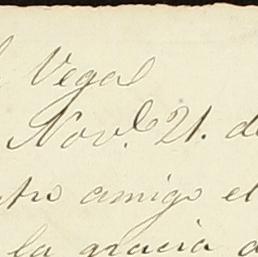 Vega
Nov.e 21. de
stro amigo el
la gracia d